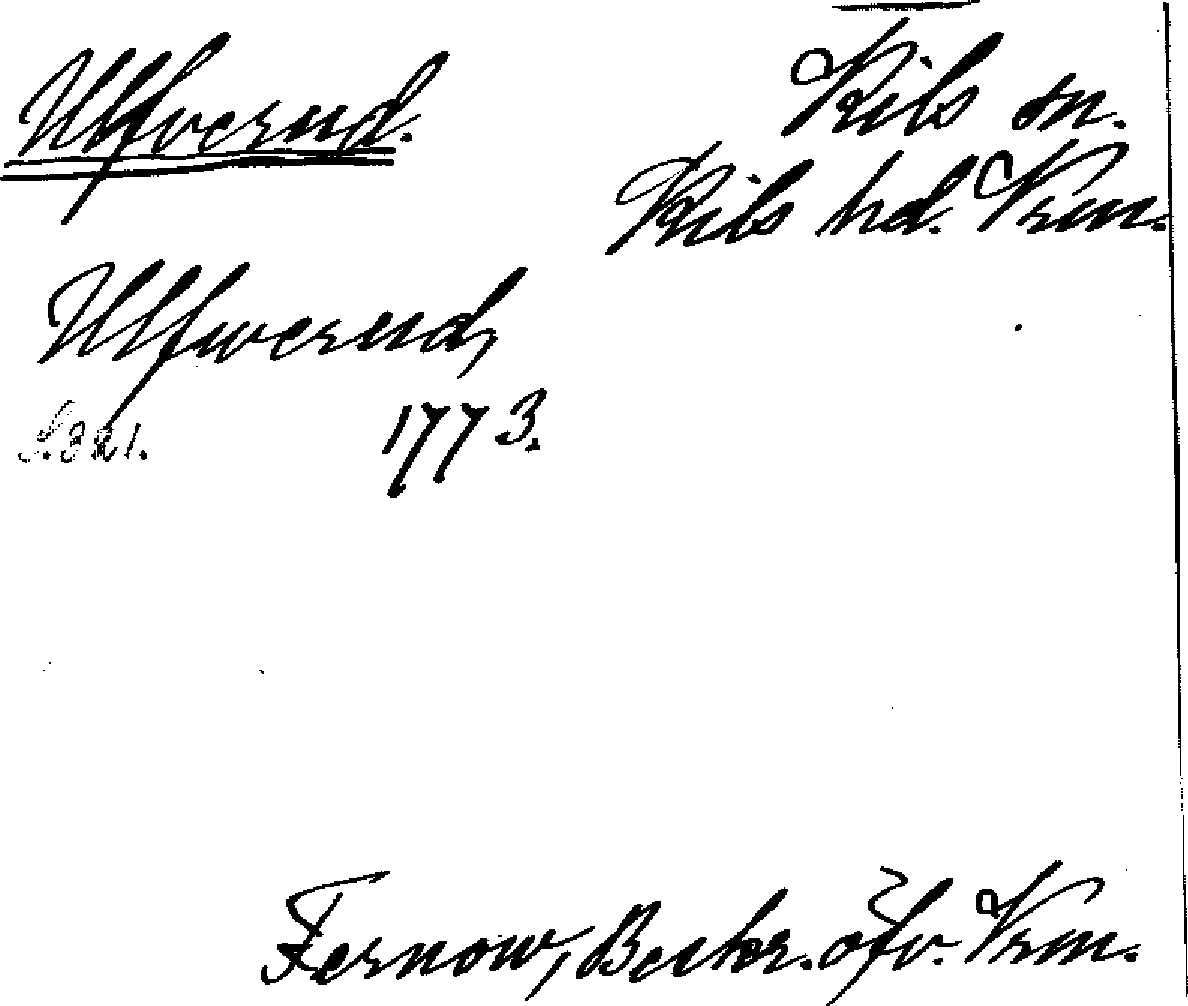 Ulfverud.
Kils sn.
Kils hd. Vrm.
Ulfwerud,
S. 321. 1773.
Fernow, Beskr. öfv. Vrm.